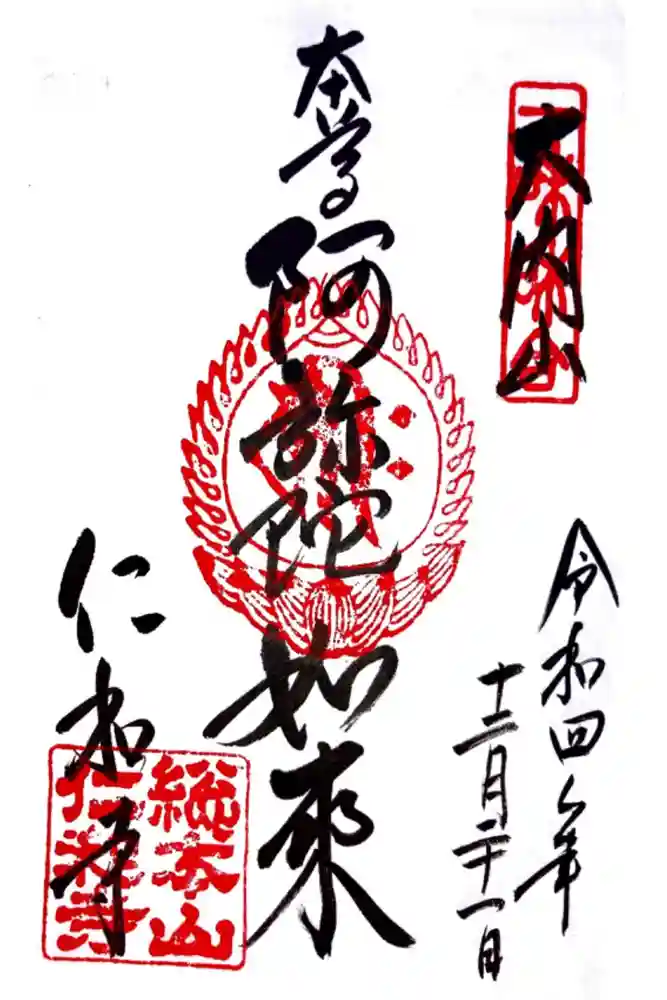 大内山
令和四年
十二月二十一日
本尊
阿弥陀如來
仁和寺
総本山
仁和寺